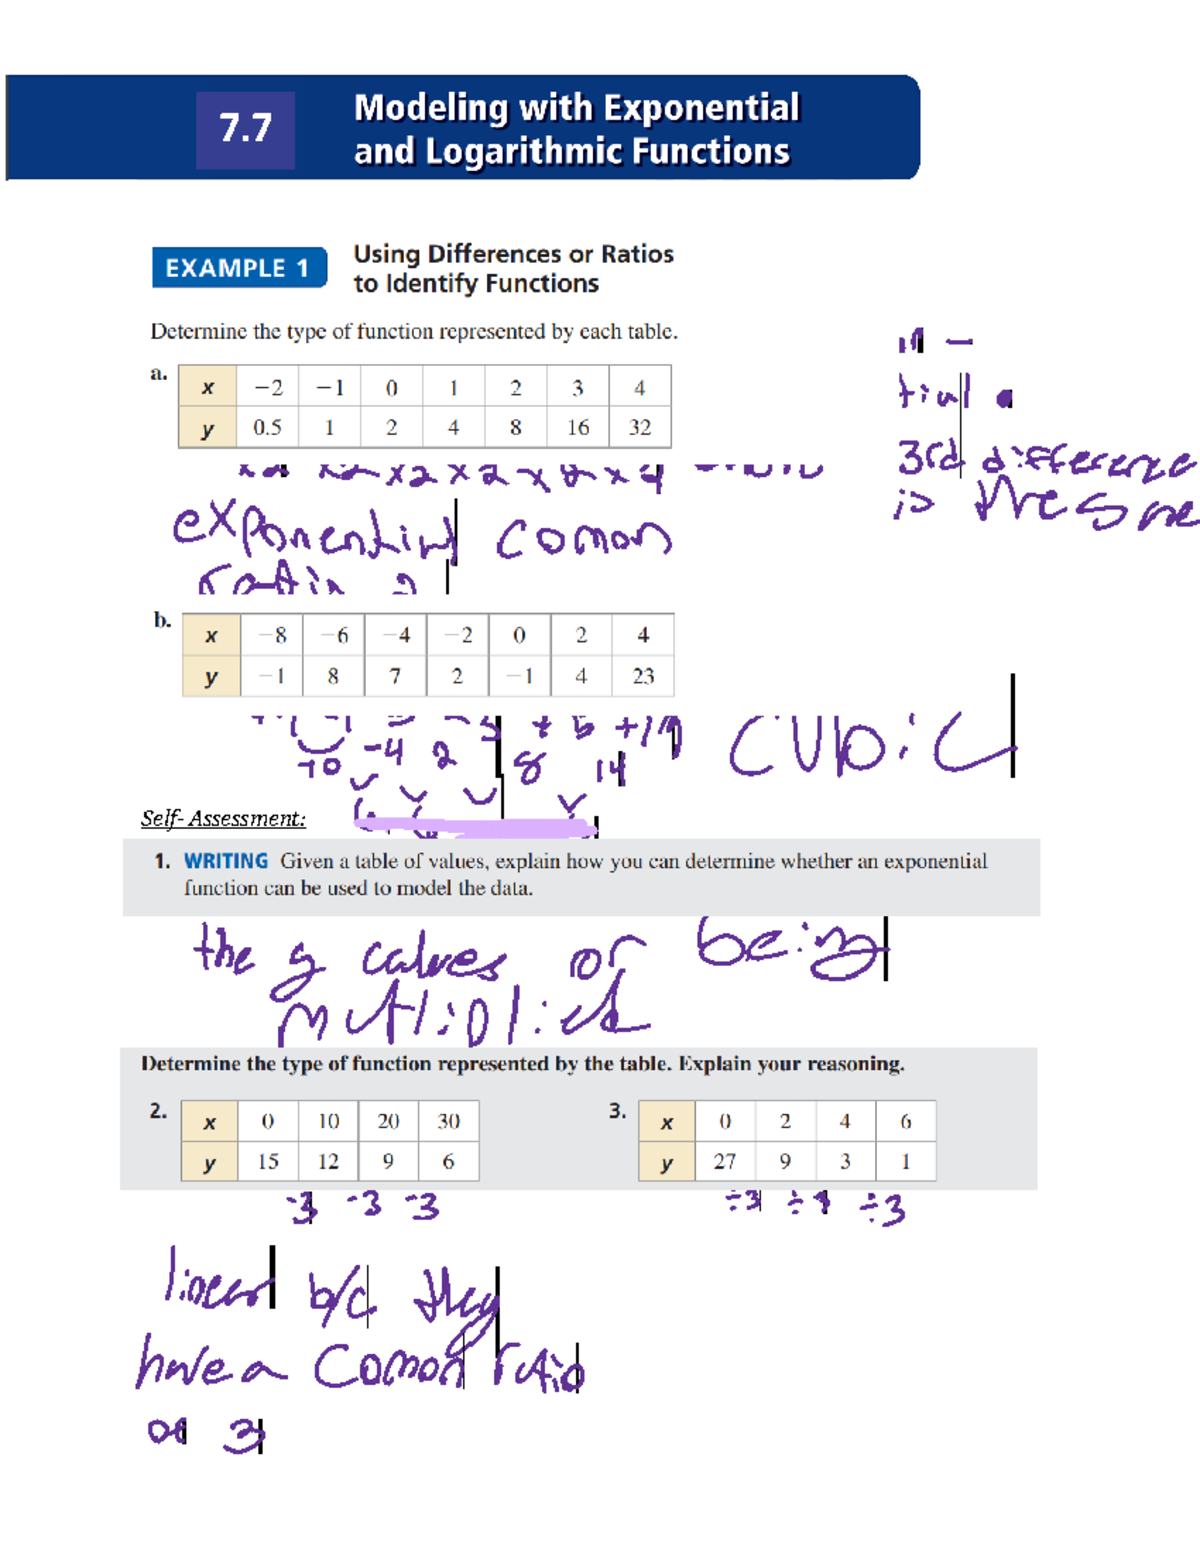 7.7
Modeling with Exponential
and Logarithmic Functions
EXAMPLE 1
Using Differences or Ratios
to Identify Functions
Determine the type of function represented by each table.
a.
x −2 −1 0 1 2 3 4
y 0.5 1 2 4 8 16 32
3rd difference
is the same
x2 x2 x2
exponential comon
ratio 2
b.
x −8 −6 −4 −2 0 2 4
y −1 8 7 2 −1 4 23
cubic
-10 -4 2 8 14
Self- Assessment:
1. WRITING Given a table of values, explain how you can determine whether an exponential
function can be used to model the data.
the y calves or being
multiplied
Determine the type of function represented by the table. Explain your reasoning.
2.
x 0 10 20 30
y 15 12 9 6
3.
x 0 2 4 6
y 27 9 3 1
-3 -3 -3
÷3 ÷3
linear b/c they
have a comon ratio
of 3